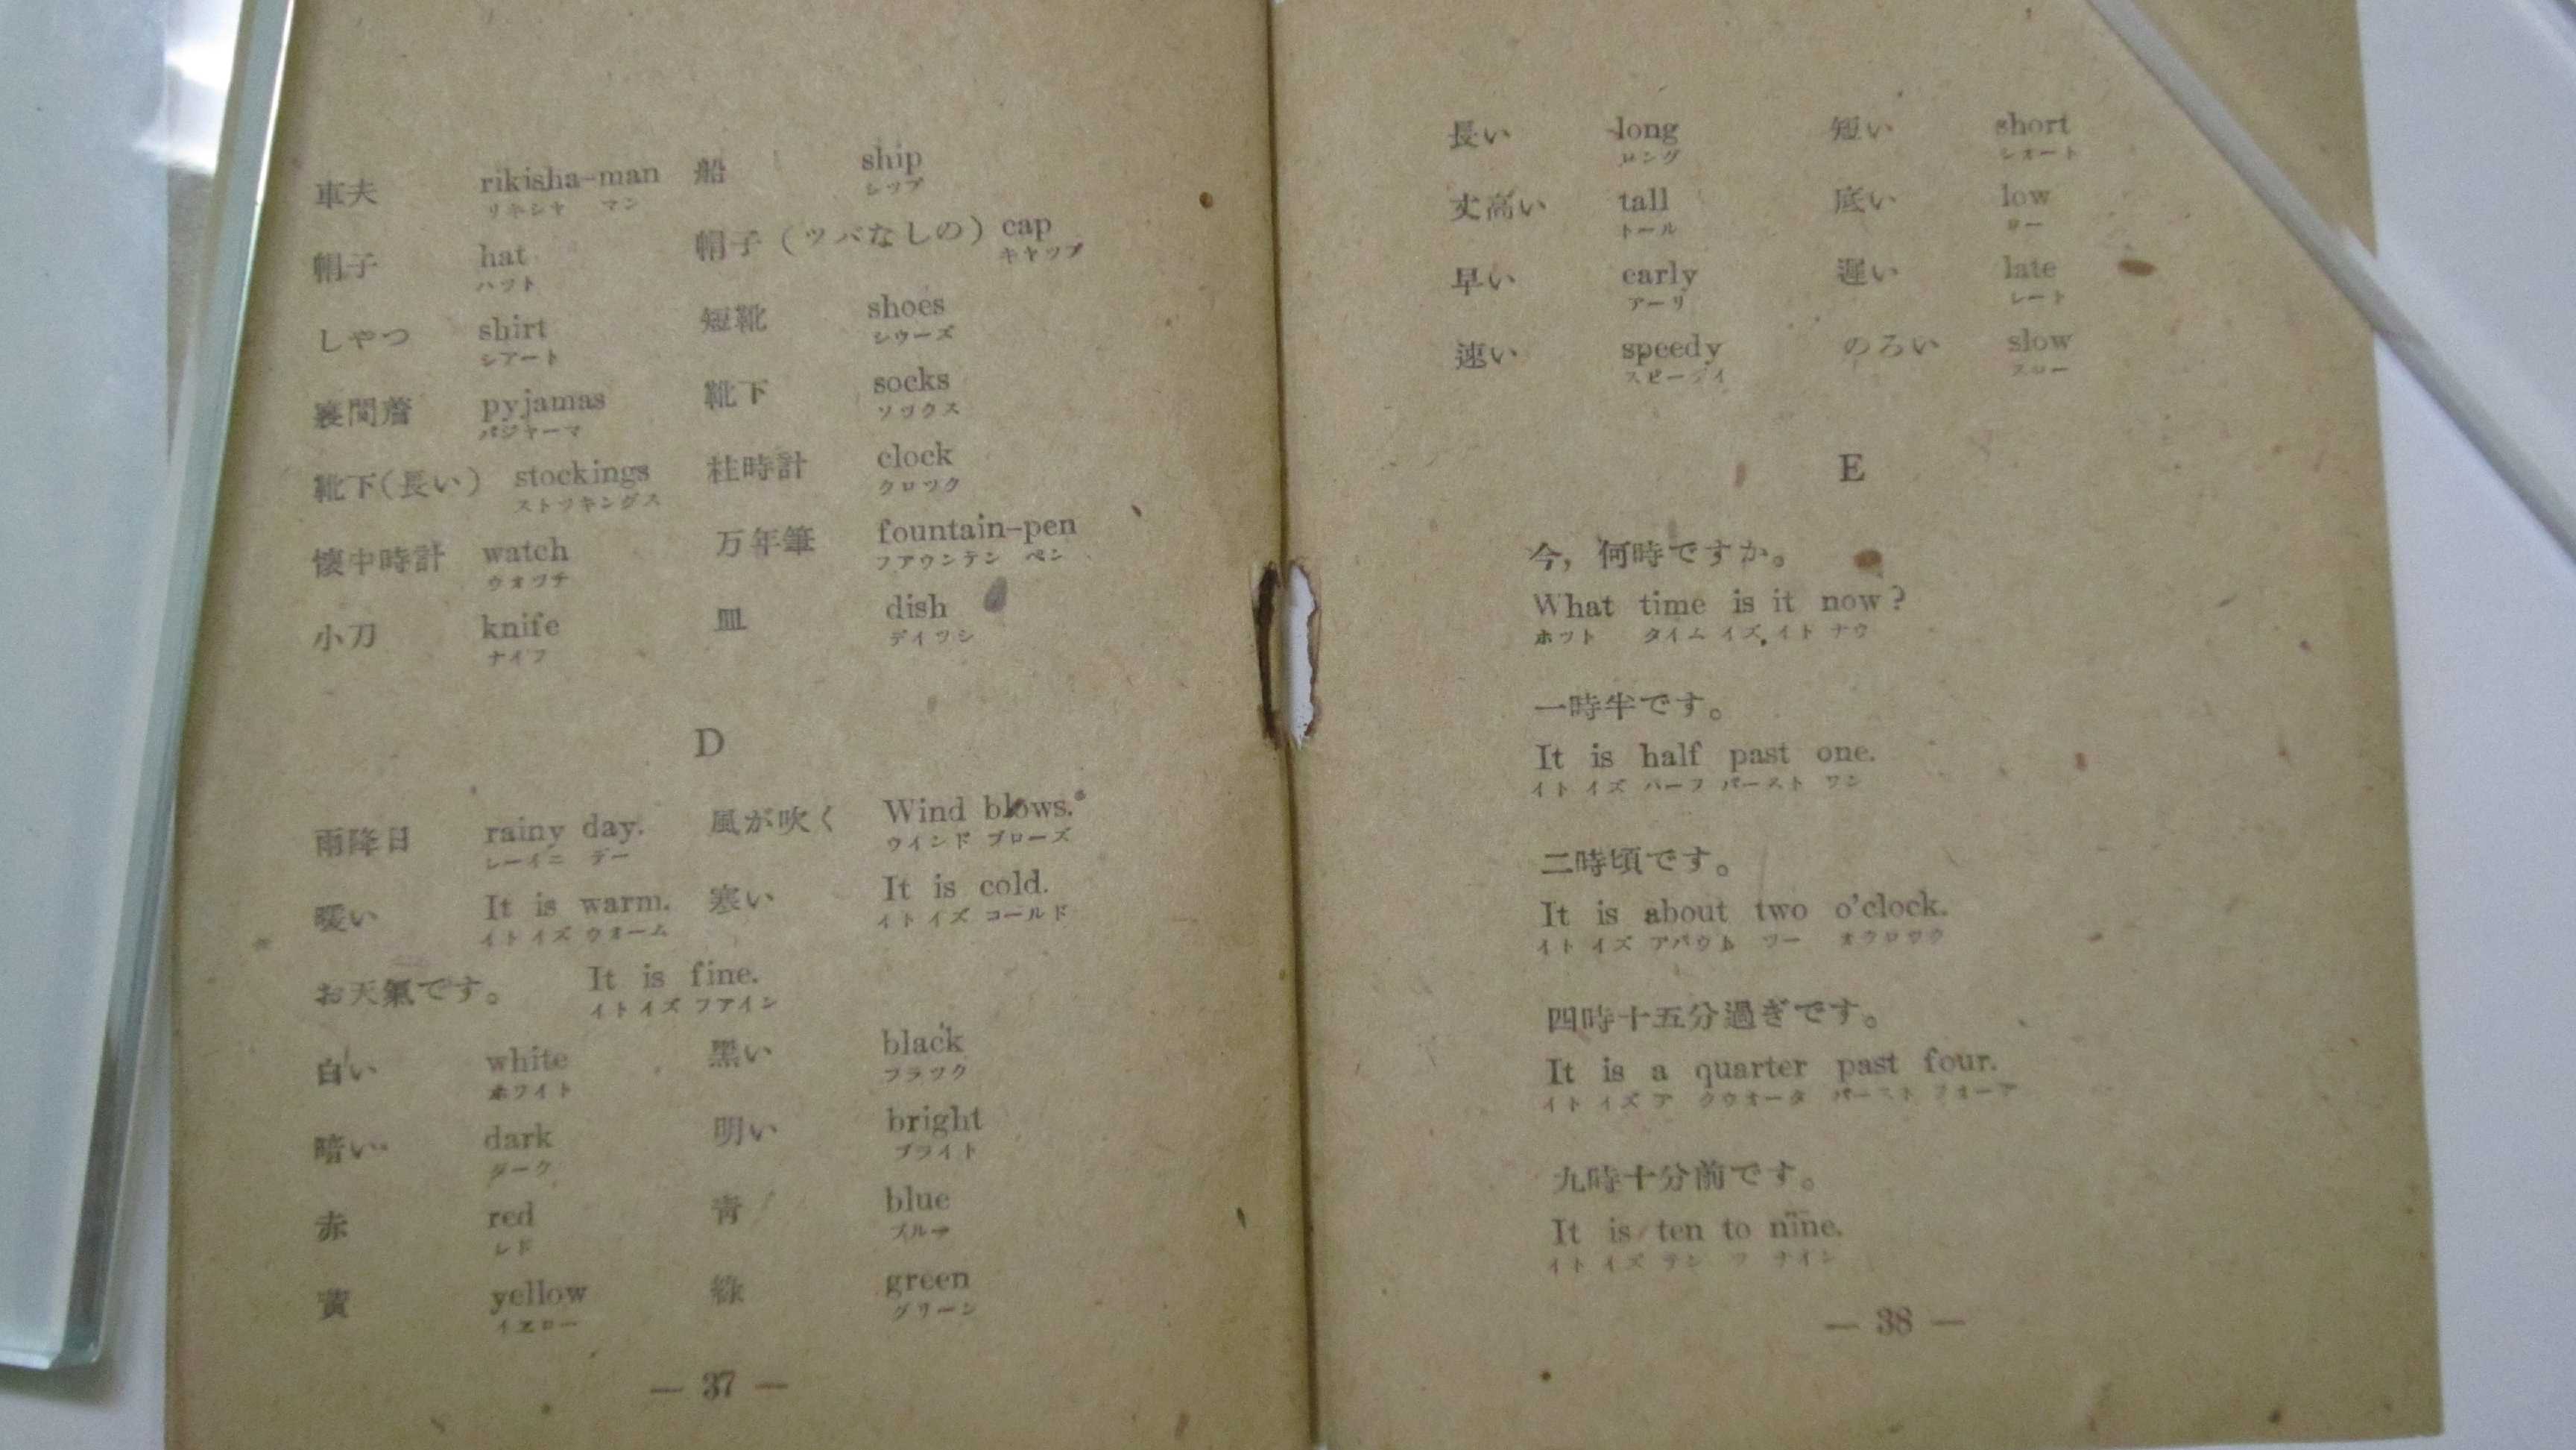 車夫 rikisha-man 船 ship
リキシヤ マン シツプ
帽子 hat 帽子(ツバなしの) cap
ハツト キヤツプ
しやつ shirt 短靴 shoes
シアート シウーズ
寝間着 pyjamas 靴下 socks
パジヤーマ ソツクス
靴下(長い) stockings 柱時計 clock
ストツキングス クロツク
懐中時計 watch 万年筆 fountain-pen
ウオツチ フアウンテン ペン
小刀 knife 皿 dish
ナイフ デイツシ
D
雨降日 rainy day. 風が吹く Wind blows.
レーイニ デー ウインド ブローズ
暖い It is warm. 寒い It is cold.
イト イズ ウオーム イト イズ コールド
お天氣です。 It is fine.
イト イズ フアイン
白い white 黒い black
ホワイト ブラツク
暗い dark 明い bright
ダーク ブライト
赤 red 青 blue
レド ブルー
黄 yellow 緑 green
イエロー グリーン
— 37 —
長い long 短い short
ロング シオート
丈高い tall 底い low
トール ロー
早い early 遅い late
アーリ レート
速い speedy のろい slow
スピーデイ スロー
E
今, 何時ですか。
What time is it now?
ホツト タイム イズ イト ナウ
一時半です。
It is half past one.
イト イズ ハーフ パースト ワン
二時頃です。
It is about two o'clock.
イト イズ アバウト ツー オクロツク
四時十五分過ぎです。
It is a quarter past four.
イト イズ ア クウオータ パースト フオーア
九時十分前です。
It is ten to nine.
イト イズ テン ツ ナイン
— 38 —